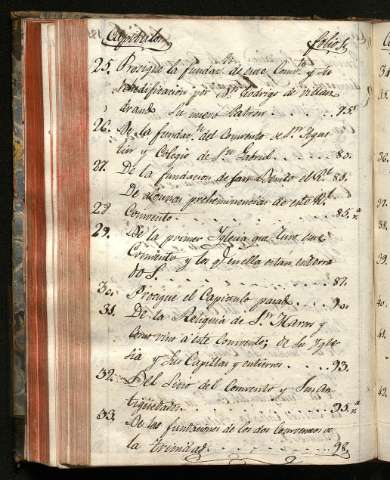 Capitulos folios
25. Prosigue la fundac.ⁿ de este Conv.to y su
reedificacion por Dⁿ Rodrigo de Villan
drando su nuevo Patron. 75.
26. De la fundac.ⁿ del Convento de Sⁿ Agus
tin y Colegio de Sⁿ Gabriel. 80.
27. De la fundacion de San Benito el R.l 83.
De algunas preheminencias de este R.l
28 Convento. 85.
29. De la primer Iglesia que tuvo este
Convento y los q.e en ella estan enterra
dos. 87.
30. Prosigue el Capitulo pasado. 90.
31. De la Reliquia de Sⁿ Marcos y
como vino a este Convento, de la Ygle
sia y sus Capillas y entierros. 93.
32. Del Sitio del Convento y sus An
tigüedades. 95.
33. De las fundaciones de los dos Conventos de
la Trinidad. 98.